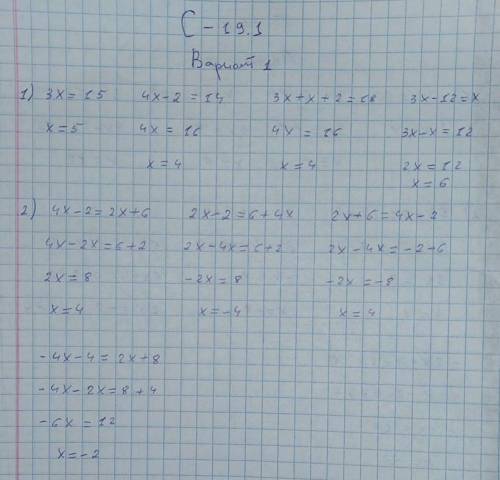 С-19.1
Вариант 1
1) 3x = 15 4x-2 = 14 3x+x+2=18 3x-12=x
x=5 4x = 16 4x = 16 3x-x=12
x=4 x=4 2x=12
x=6
2) 4x-2=2x+6 2x-2=6+4x 2x+6=4x-2
4x-2x=6+2 2x-4x=6+2 2x-4x=-2+6
2x=8 -2x=8 -2x=-8
x=4 x=-4 x=4
-4x-4=2x+8
-4x-2x=8+4
-6x=12
x=-2